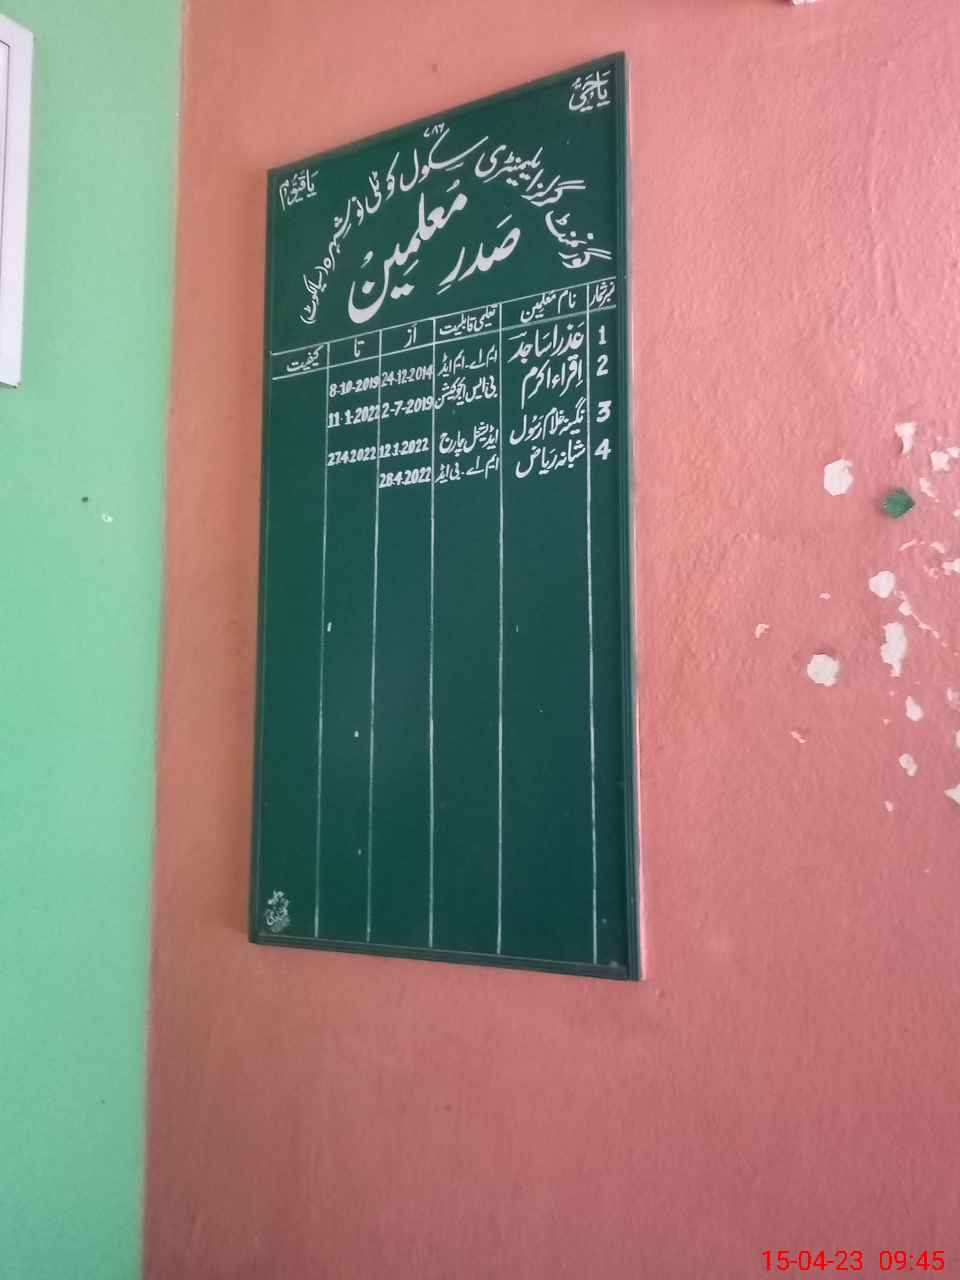 یَاحَیُّ
۷۸۶
یَاقَیُّوْمُ
گورنمنٹ گرلز ایلیمنٹری سکول کوٹلی نوشہرہ (سیالکوٹ)
صَدرِ مُعلمِینُ
نمبر شمار نام معلمین تعلیمی قابلیت از تا کیفیت
1 عَذرا سَاجد ایم اے۔ ایم ایڈ 24-12-2014 8-10-2019
2 اِقراء اکرم بی ایس ایجوکیشن 2-7-2019 11-1-2022
3 نگینہ غلام رَسُول ایڈیشنل چارج 12.1-2022 27.4.2022
4 شبانہ ریاض ایم اے۔ بی ایڈ 28.4.2022
15-04-23 09:45